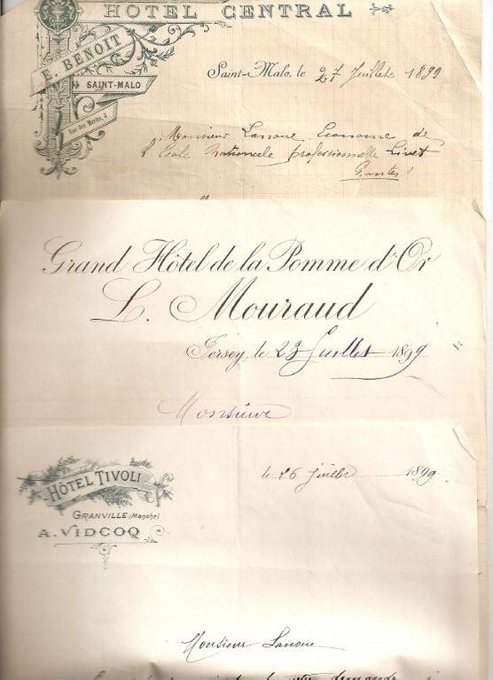 HOTEL CENTRAL
E. BENOIT
SAINT-MALO
Saint-Malo, le 27 Juillet 1899
Monsieur Lanoue Econome de
l'Ecole Nationale professionnelle Livet
Nantes
Grand Hôtel de la Pomme d'Or
L. Mouraud
Jersey, le 23 Juillet 1899
Monsieur
HÔTEL TIVOLI
GRANVILLE (Manche)
A. VIDCOQ
le 26 Juillet 1899
Monsieur Lanoue
demande